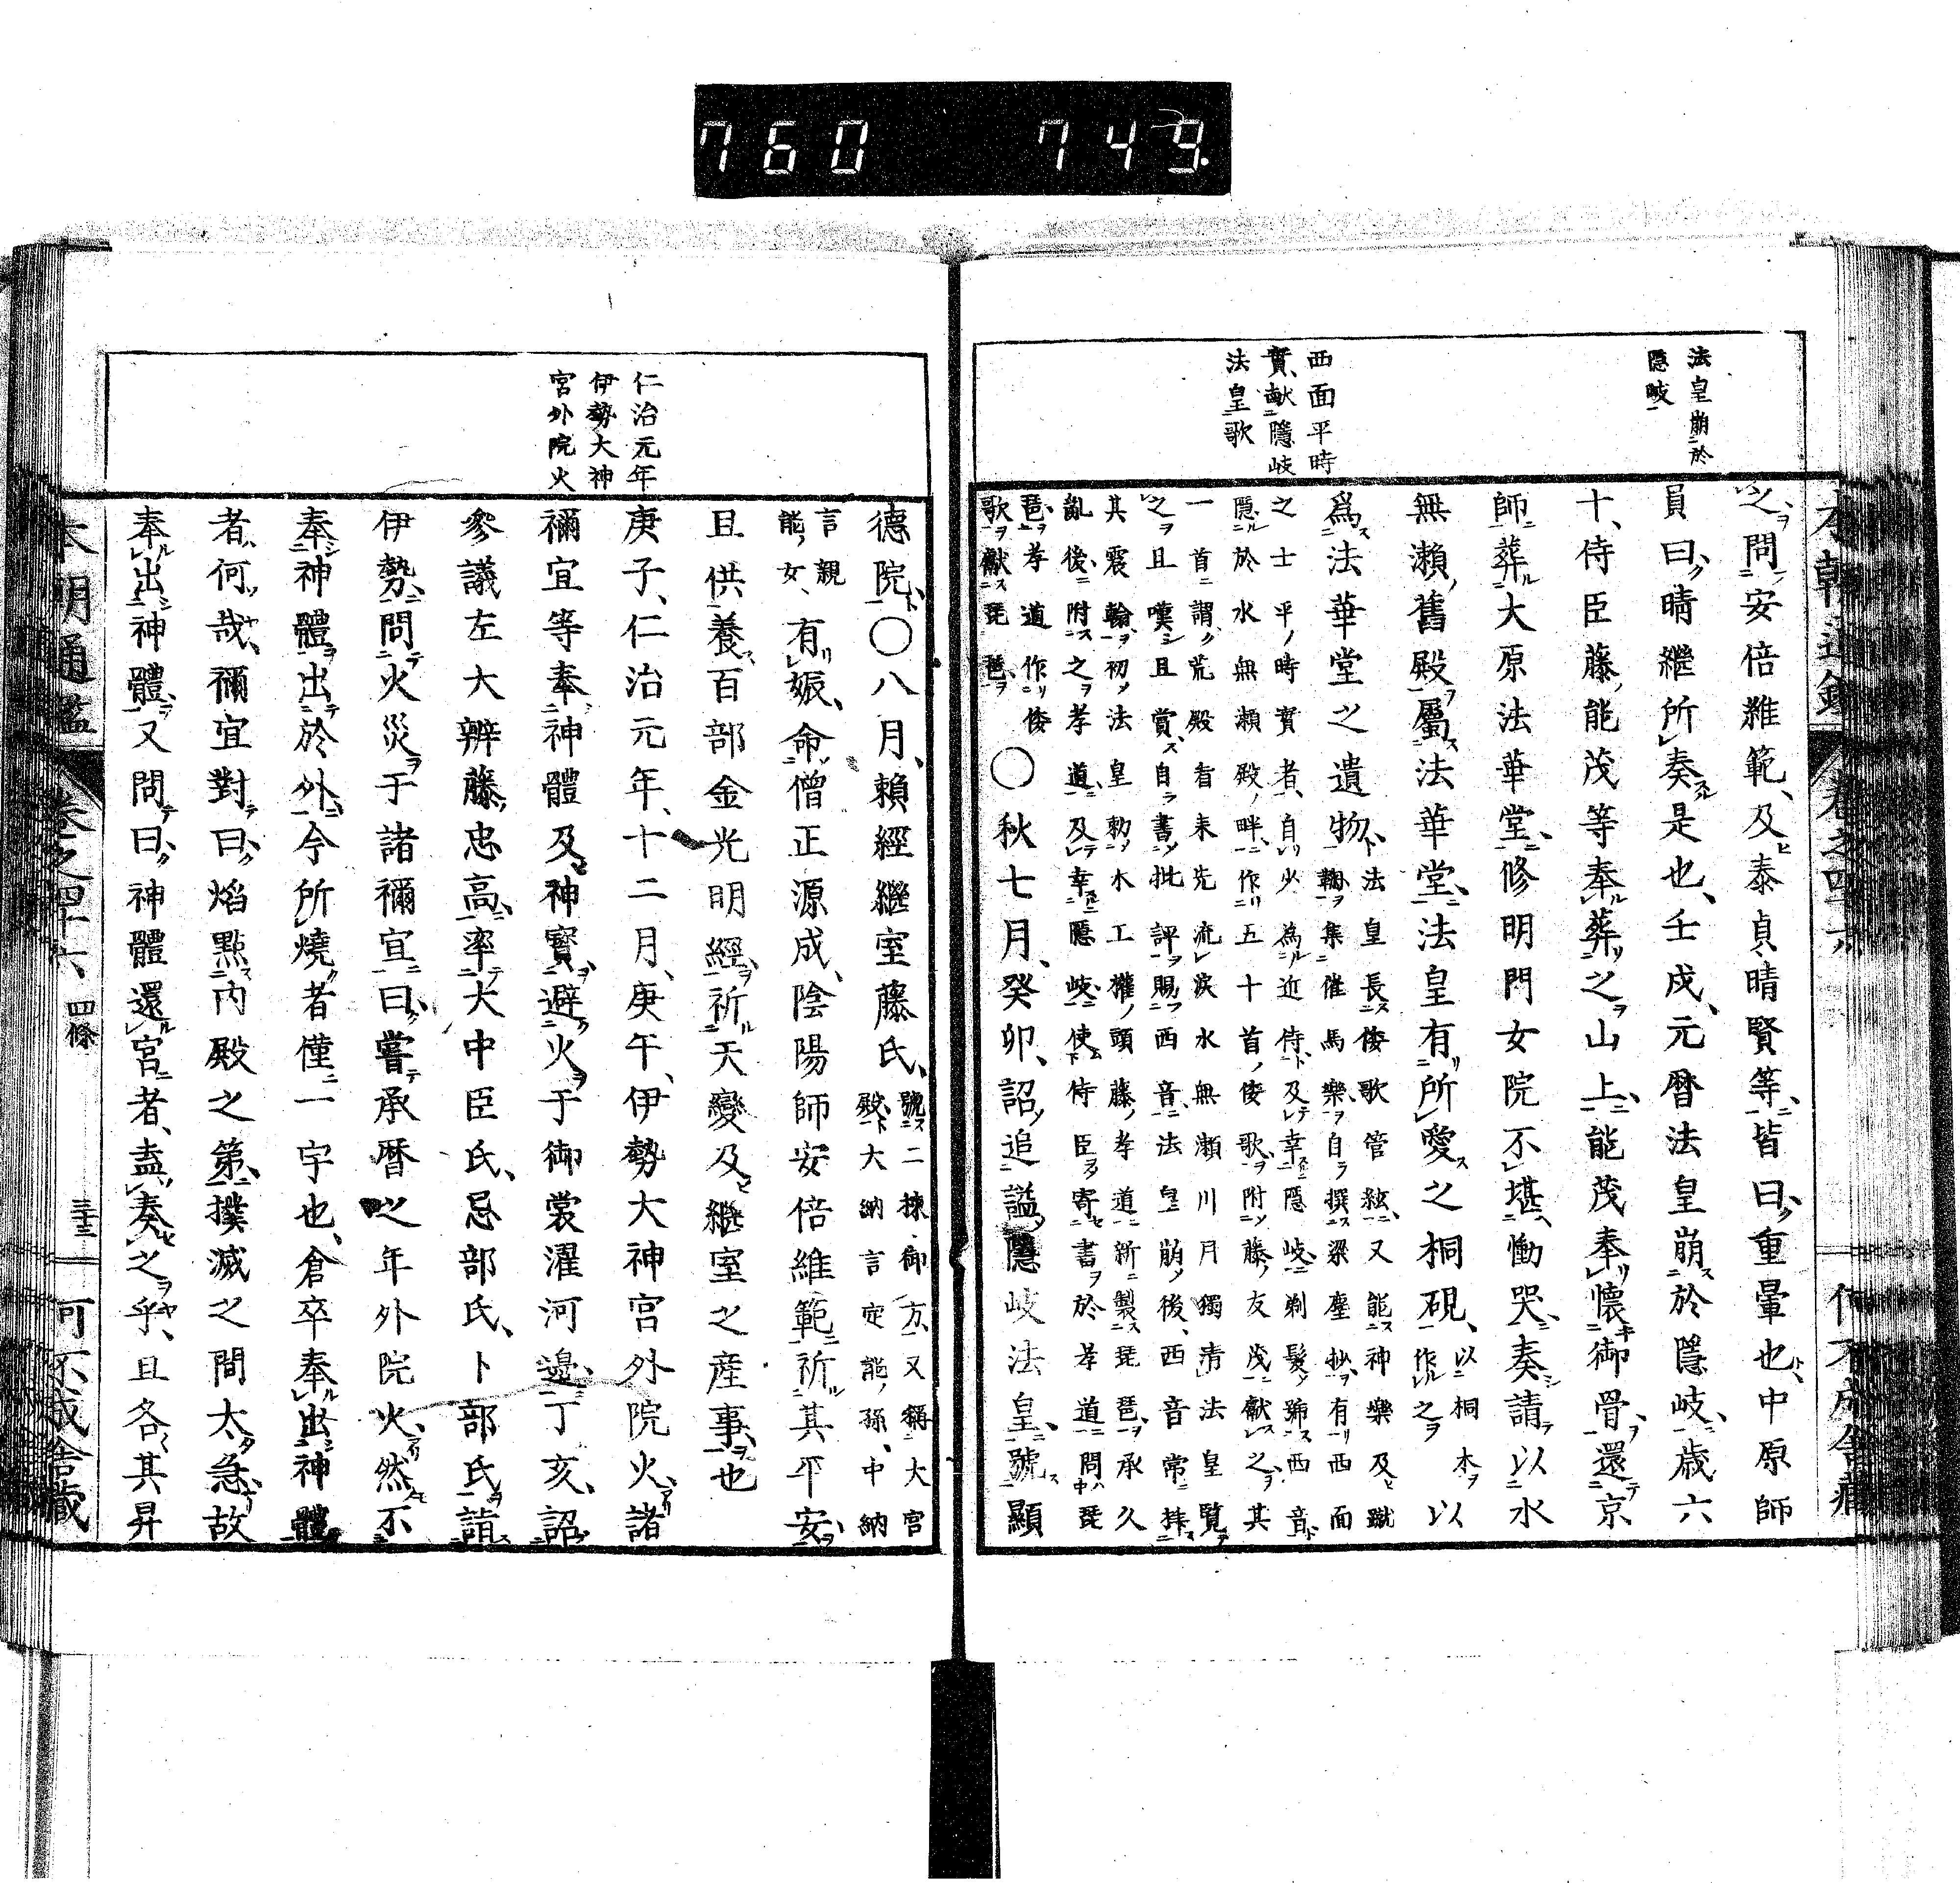 760 749
法皇崩於
隱岐
西面平時
實獻隱岐
法皇歌
之問安倍維範及泰貞晴賢等皆曰重暈也中原師
員曰晴繼所奏是也壬戌元曆法皇崩於隱岐歲六
十侍臣藤能茂等奉葬之山上能茂奉懷御骨還京
師葬大原法華堂修明門女院不堪慟哭奏請以水
無瀨舊殿屬法華堂法皇有所愛之桐硯以桐木作之以
爲法華堂之遺物法皇長倭歌管絃又能神樂及蹴
鞠集催馬樂自撰梁塵抄有西面
之士平時實者自少爲近侍及幸隱岐剃髮號西音
隱於水無瀨殿畔作五十首倭歌附藤友茂獻之其
一首謂荒殿看來先流淚水無瀨川月獨淸法皇覽
之且嘆且賞自書批評賜西音法皇崩後西音常捧
其震翰初法皇勅木工權頭藤孝道新製琵琶承久
亂後附之孝道及幸隱岐使侍臣寄書於孝道問琵
琶孝道作倭
歌獻琵琶
○秋七月癸卯詔追謚隱岐法皇號顯
本朝通鑑 卷之四十六 四條 三十三 何不成舍藏
仁治元年
伊勢大神
宮外院火
德院○八月賴經繼室藤氏號二棟御方又稱大宮
殿大納言定能孫中納
言親
能女有娠命僧正源成陰陽師安倍維範祈其平安
且供養百部金光明經祈天變及繼室之產事也
庚子仁治元年十二月庚午伊勢大神宮外院火諸
禰宜等奉神體及神寶避火于御裳濯河邊丁亥詔
參議左大辨藤忠高率大中臣氏忌部氏卜部氏詣
伊勢問火災于諸禰宜曰嘗承曆之年外院火然不
奉神體出於外今所燒者僅一宇也倉卒奉出神體
者何哉禰宜對曰焰點內殿之第撲滅之間太急故
奉出神體又問曰神體還宮者盍奏之乎且各其昇